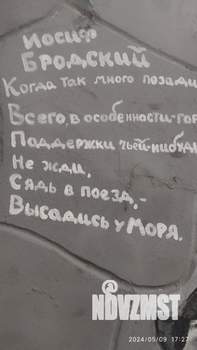 Иосиф
Бродский
Когда так много позади
Всего, в особенности-гор
Поддержки чьей-нибудь
Не жди,
Сядь в поезд,-
Высадись у моря.
N1
NDVZMST
2024/05/09 17:27